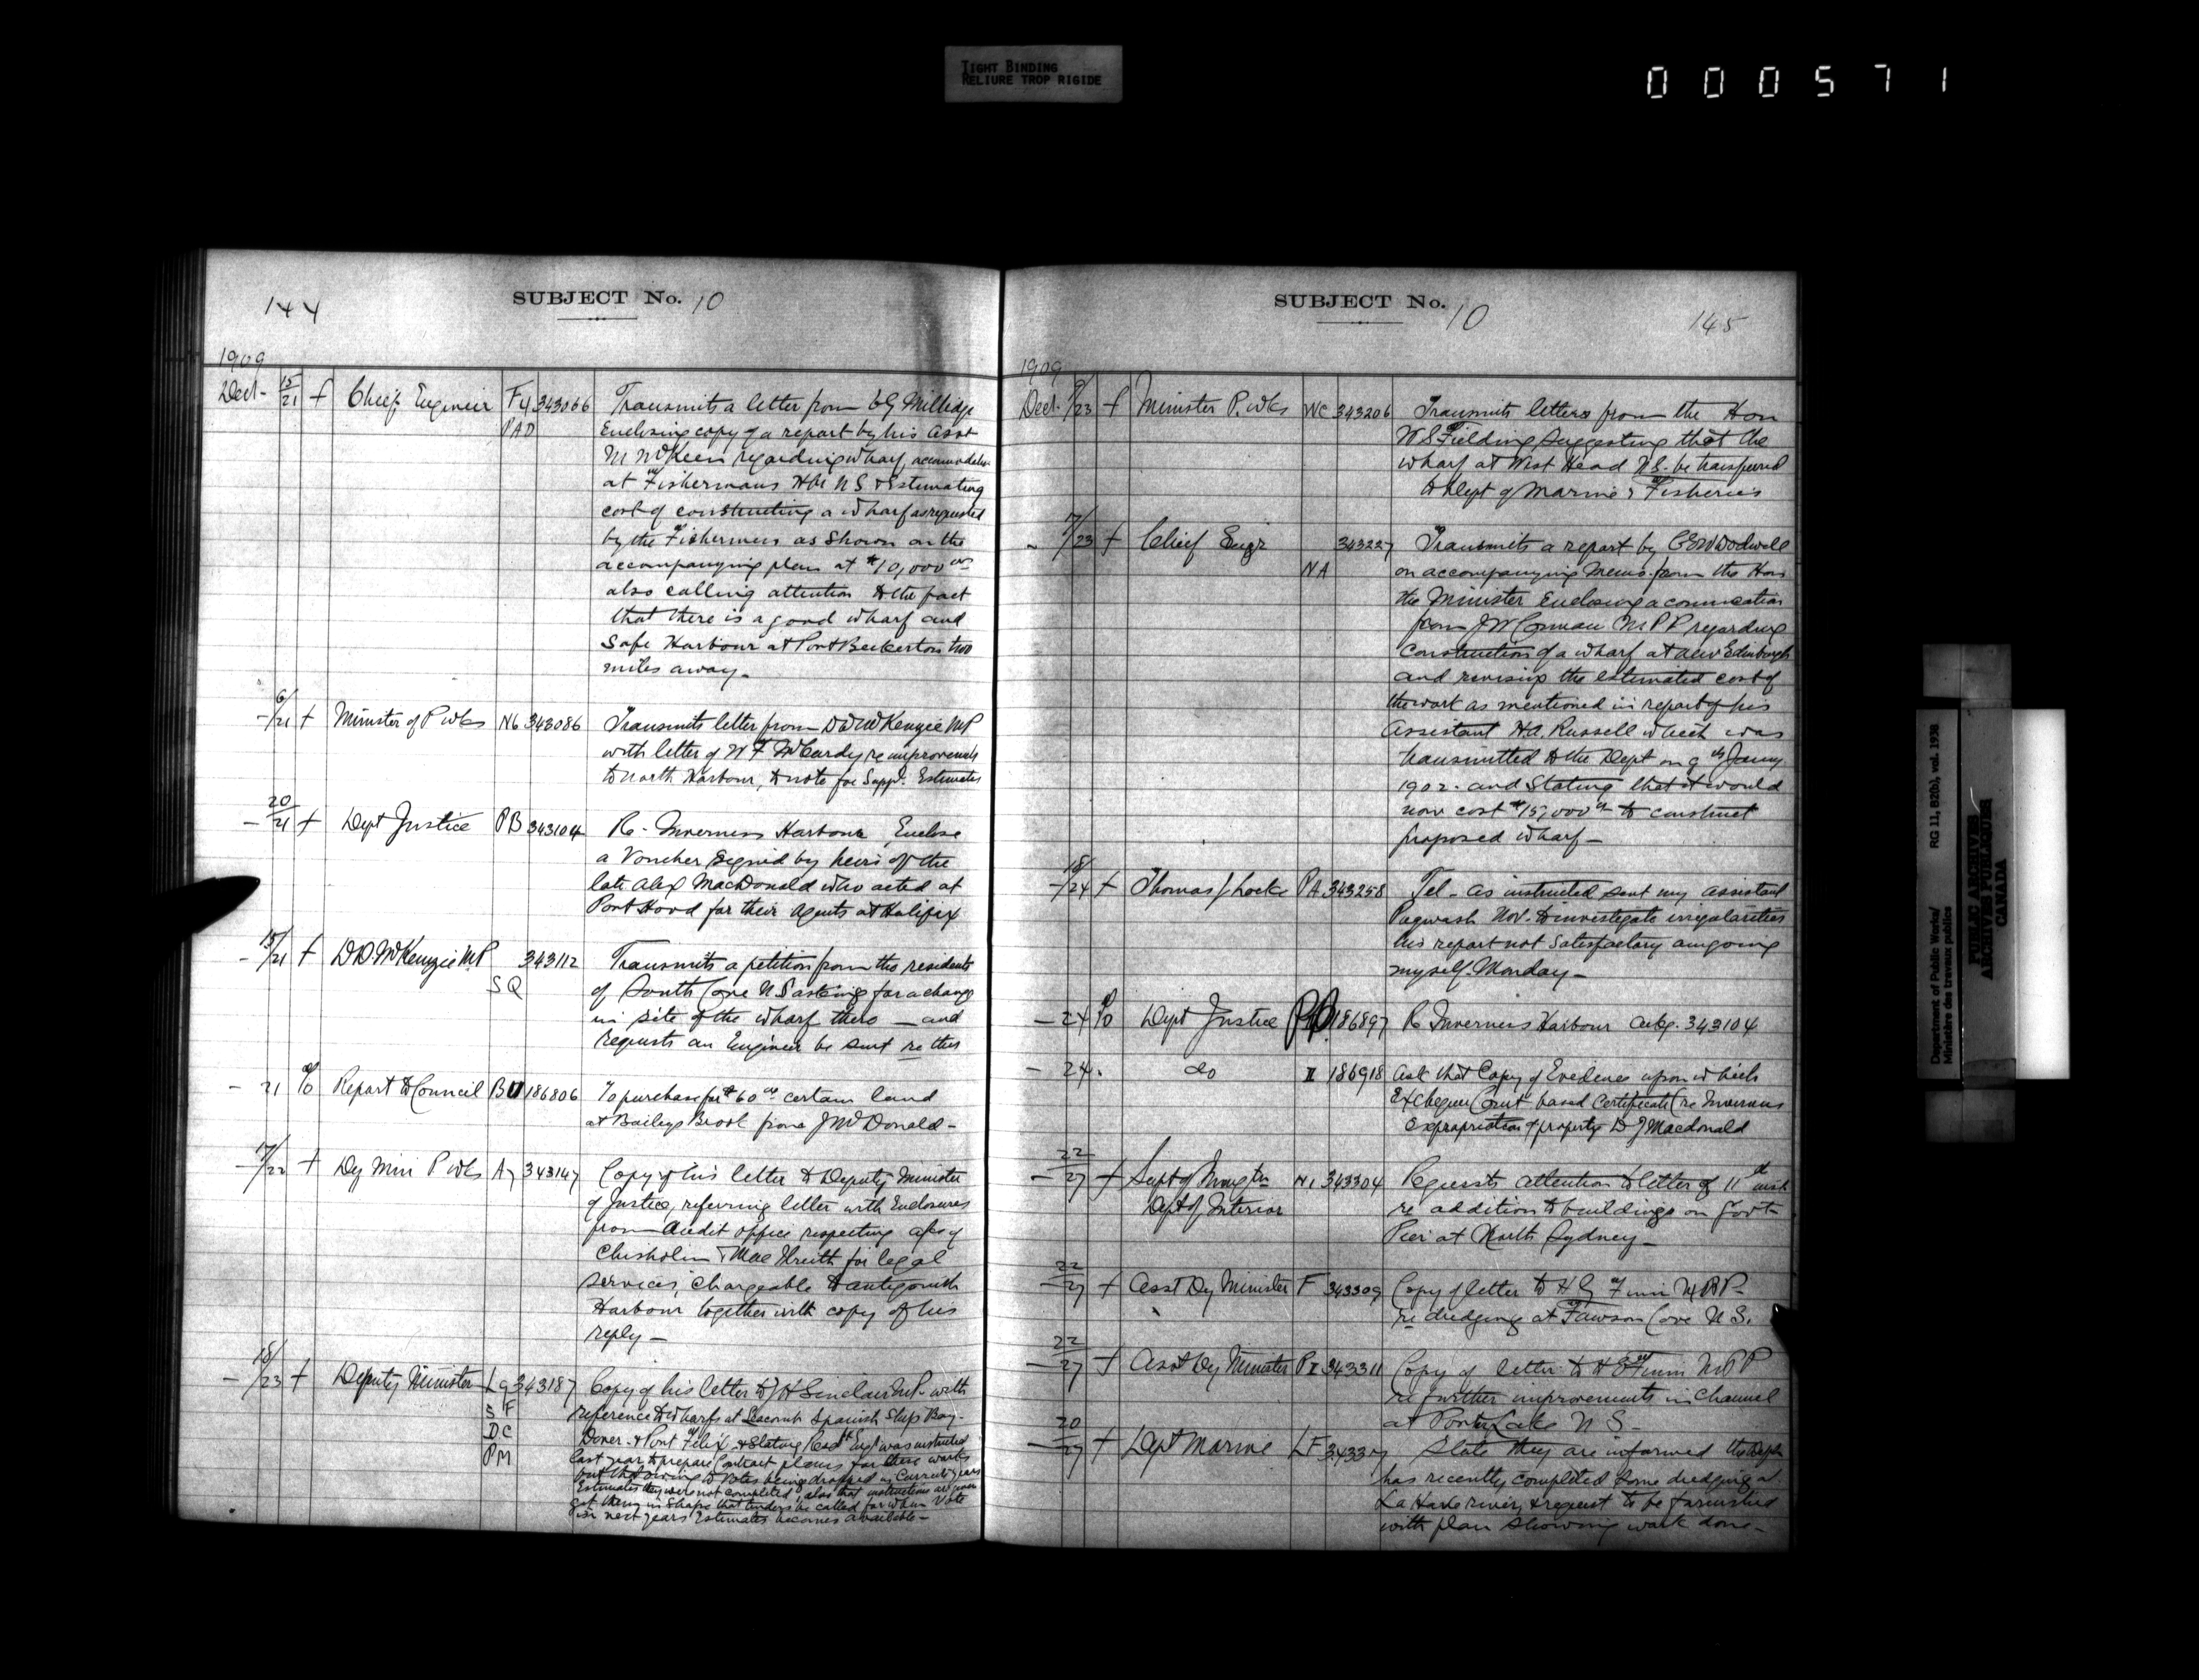 TIGHT BINDING
RELIURE TROP RIGIDE
000571
144
SUBJECT No. 10
1909
Dect - 15/21 f Chief Engineer F4 343066 Transmits a letter from
PAD Enclosing copy of a report by his asst
regarding wharf
at Fishermans Hbr N S & Estimating
cost of constructing a wharf as requested
by the Fishermen as shown on the
accompanying plan at $10,000 00
also calling attention to the fact
that there is a good wharf and
Safe Harbour at Port Beckerton two
miles away -
- 6/21 f Minister of P wks N6 343086 Transmits letter from D D McKenzie MP
with letter of W F McCurdy re improvements
to North Harbour, to note for Suppl. Estimates
- 20/21 f Dept Justice PB 343104 Re - Inverness Harbour, Enclose
a Voucher Signed by heirs of the
late Alex MacDonald who acted at
Port Hood for their Agents at Halifax
- 15/21 f D.D. McKenzie M.P. 343112 Transmits a petition from the residents
SQ of South Cove N S asking for a change
in site of the wharf there — and
requests an Engineer be sent re this
- 21 % Report to Council BU 186806 To purchase for $60 00 certain land
at Baileys Brook from J McDonald -
- 17/22 f Dy Min P wks A7 343147 Copy of his letter to Deputy Minister
of Justice, referring letter with Enclosures
from Audit office respecting a/c of
Chisholm & for legal
services, chargeable to Antigonish
Harbour together with copy of his
reply -
- 18/23 f Deputy Minister L9 343187 Copy of his letter to J H Sinclair M.P. with
SF reference to wharfs at Spanish Ship Bay -
DC & Port Felix & Stating Resdt Engr was instructed
PM last year to prepare Contract plans for these works
but that owing to Votes being dropped in Current years
Estimates they were not completed, also that instructions are given
get them in shape that tenders be called for when Vote
in next years Estimates becomes available -
SUBJECT No. 10
145
1909
Dect. 9/23 f Minister P. wks WC 343206 Transmits letters from the Hon
W S Fielding suggesting that the
wharf at West Head N.S. be transferred
to Dept of Marine & Fisheries
- 7/23 f Chief Engr 343227 Transmits a report by C E W Dodwell
NA on accompanying Memo. from the Hon
the Minister Enclosing a
from J W Comeau M P P regarding
Construction of a wharf at New Edinburgh
and revising the estimated cost of
the work as mentioned in report of his
Assistant H A. Russell which was
transmitted to the Dept on 9th Jany
1902 - and Stating that it would
now cost $15,000 00 to construct
proposed wharf -
- 18/24 f Thomas J Locke PA 343258 Tel - As instructed sent my assistant
Pugwash Nov. to investigate irregularities
his report not Satisfactory am going
myself Monday -
- 24 % Dept Justice PB 186897 Re Inverness Harbour Ackg. 343104
- 24 . do II 186918 Ask that Copy of Evidence upon which
Exchequer Court based Certificate (re Inverness
Expropriation of property D J Macdonald
- 22/27 f Supt of Immgtn N1 343304 Requests attention to letter of 11th inst
Dept of Interior re addition to buildings on Govt
Pier at North Sydney -
- 22/27 f Asst Dy Minister F 343309 Copy of letter to H G Finn M P P -
re dredging at Cove N S.
- 22/27 f Asst Dy Minister PI 343311 Copy of letter to H Finn M P P
re further improvements in Channel
at Porters Lake N S -
- 20/27 f Dept Marine LF State they are informed this Dept
has recently completed some dredging at
La Have river, & request to be furnished
with plan showing work done -
Department of Public Works/ RG 11, B2(b), vol. 1938
Ministère des travaux publics
PUBLIC ARCHIVES
ARCHIVES PUBLIQUES
CANADA